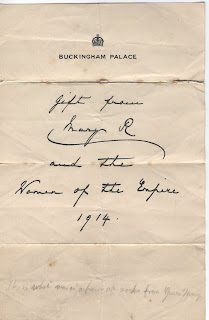 BUCKINGHAM PALACE
Gift from
Mary R
and the
Women of the Empire
1914.
This from Queen Mary